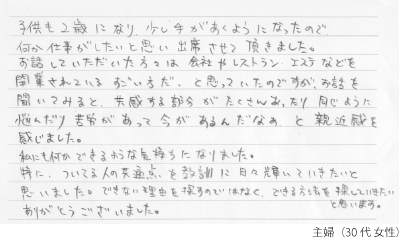 子供も2歳になり、少し手があくようになったので
何か仕事がしたいと思い出席させて頂きました。
お話していただいた方々は会社やレストラン・エステなどを
開業されているすごい方だ、と思っていたのですが、お話を
聞いてみると、共感する部分がたくさんあったり同じように
悩んだり苦労があって今があるんだなぁと親近感を
感じました。
私にも何かできるような気持ちになりました。
特に、ついてる人の共通点を教訓に日々輝いていきたいと
思いました。できない理由を探すのではなく、できる方法を探していきたい
と思います。
ありがとうございました。
主婦（30代女性）